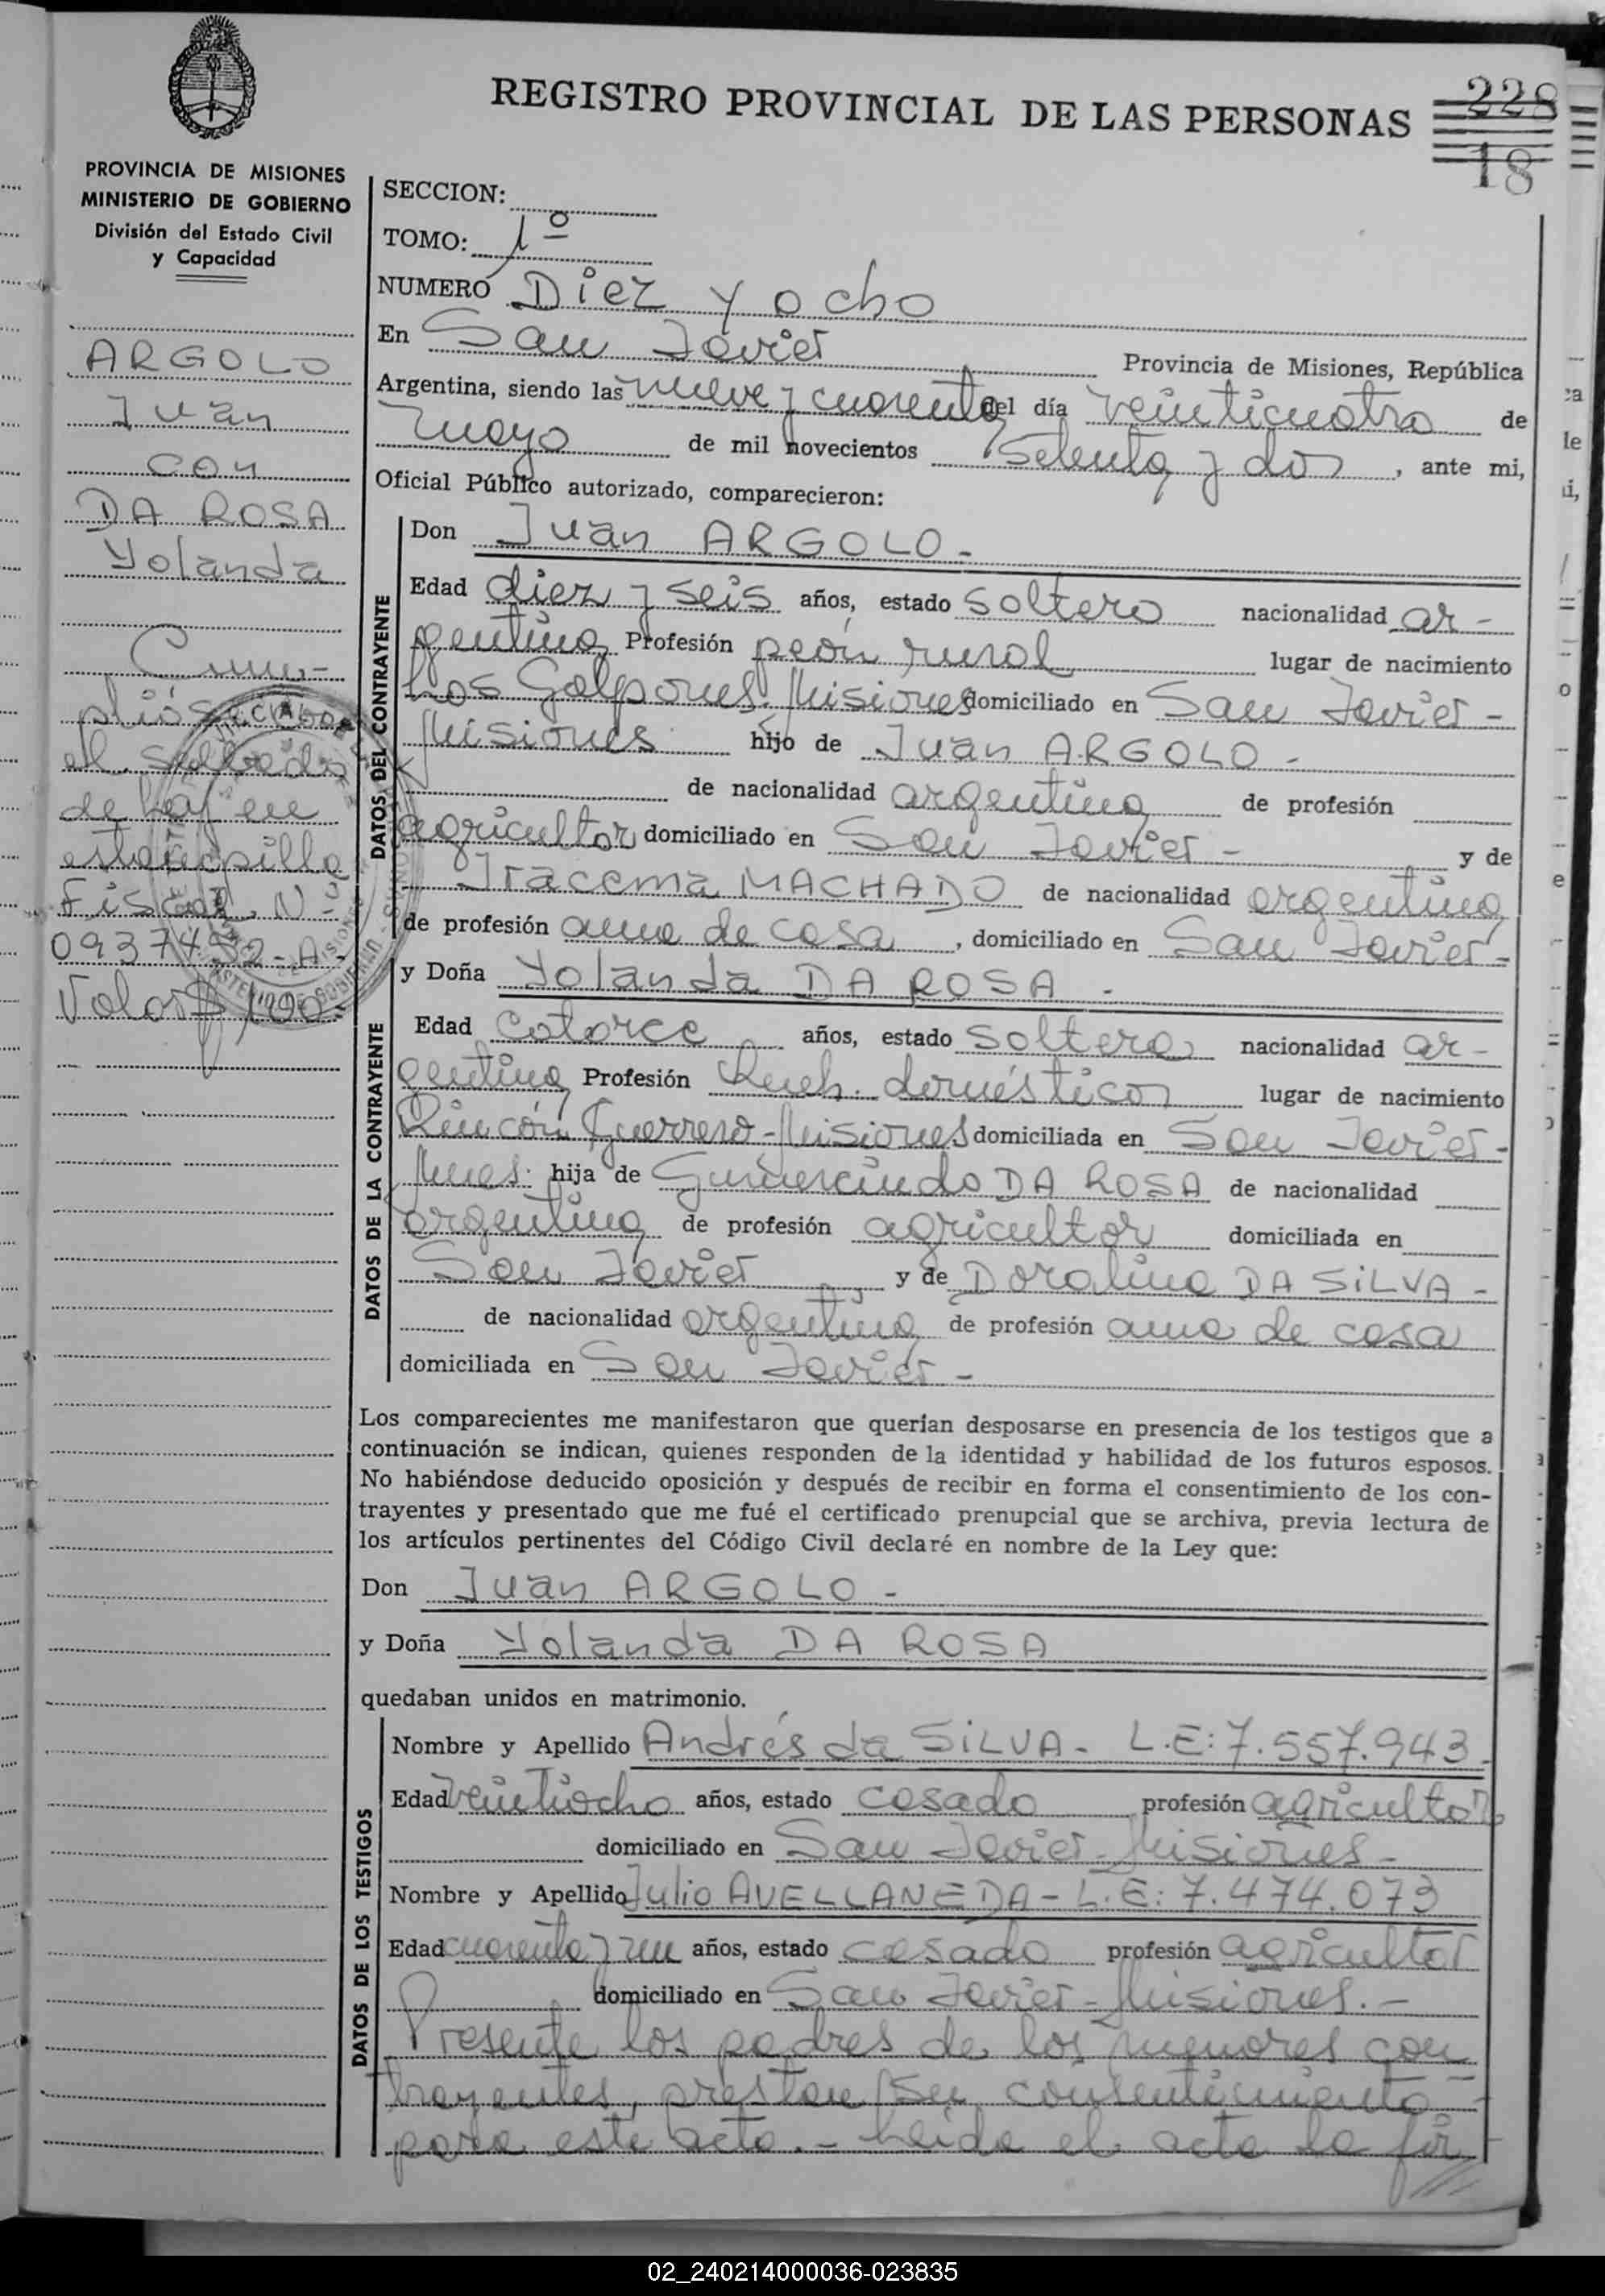 REGISTRO PROVINCIAL DE LAS PERSONAS
228
18
PROVINCIA DE MISIONES
MINISTERIO DE GOBIERNO
División del Estado Civil
y Capacidad
ARGOLO
Juan
con
DA ROSA
Yolanda
Cum-
plióse
el sellado
de ley en
estampilla
Fiscal N-
0937452-A-
Valor $ 100-
SECCION:
TOMO: 1º
NUMERO Diez y ocho
En San Javier Provincia de Misiones, República
Argentina, siendo las nueve y cuarenta del día veinticuatro de
mayo de mil novecientos setenta y dos, ante mi,
Oficial Público autorizado, comparecieron:
DATOS DEL CONTRAYENTE
Don Juan ARGOLO-
Edad diez y seis años, estado soltero nacionalidad ar-
gentina Profesión peón rural lugar de nacimiento
Los Galpones. Misiones domiciliado en San Javier-
Misiones hijo de Juan ARGOLO-
de nacionalidad argentina de profesión
agricultor domiciliado en San Javier- y de
Iracema MACHADO de nacionalidad argentina
de profesión ama de casa, domiciliado en San Javier-
y Doña Yolanda DA ROSA-
DATOS DE LA CONTRAYENTE
Edad catorce años, estado soltera nacionalidad ar-
gentina Profesión Queh. domésticos lugar de nacimiento
Rincón Guerrero-Misiones domiciliada en San Javier-
Mnes. hija de Gumercindo DA ROSA de nacionalidad
argentina de profesión agricultor domiciliada en
San Javier y de Doralina DA SILVA-
de nacionalidad argentina de profesión ama de casa
domiciliada en San Javier-
Los comparecientes me manifestaron que querían desposarse en presencia de los testigos que a
continuación se indican, quienes responden de la identidad y habilidad de los futuros esposos.
No habiéndose deducido oposición y después de recibir en forma el consentimiento de los con-
trayentes y presentado que me fué el certificado prenupcial que se archiva, previa lectura de
los artículos pertinentes del Código Civil declaré en nombre de la Ley que:
Don Juan ARGOLO-
y Doña Yolanda DA ROSA
quedaban unidos en matrimonio.
DATOS DE LOS TESTIGOS
Nombre y Apellido Andrés da SILVA- L.E: 7.557.943-
Edad veintiocho años, estado casado profesión agricultor
domiciliado en San Javier-Misiones-
Nombre y Apellido Julio AVELLANEDA- L.E: 7.474.073
Edad cuarenta y un años, estado casado profesión agricultor
domiciliado en San Javier-Misiones.-
Presente los padres de los menores con
trayentes, prestan su consentimiento
para este acto.- Leida el acta la fir
02_240214000036-023835